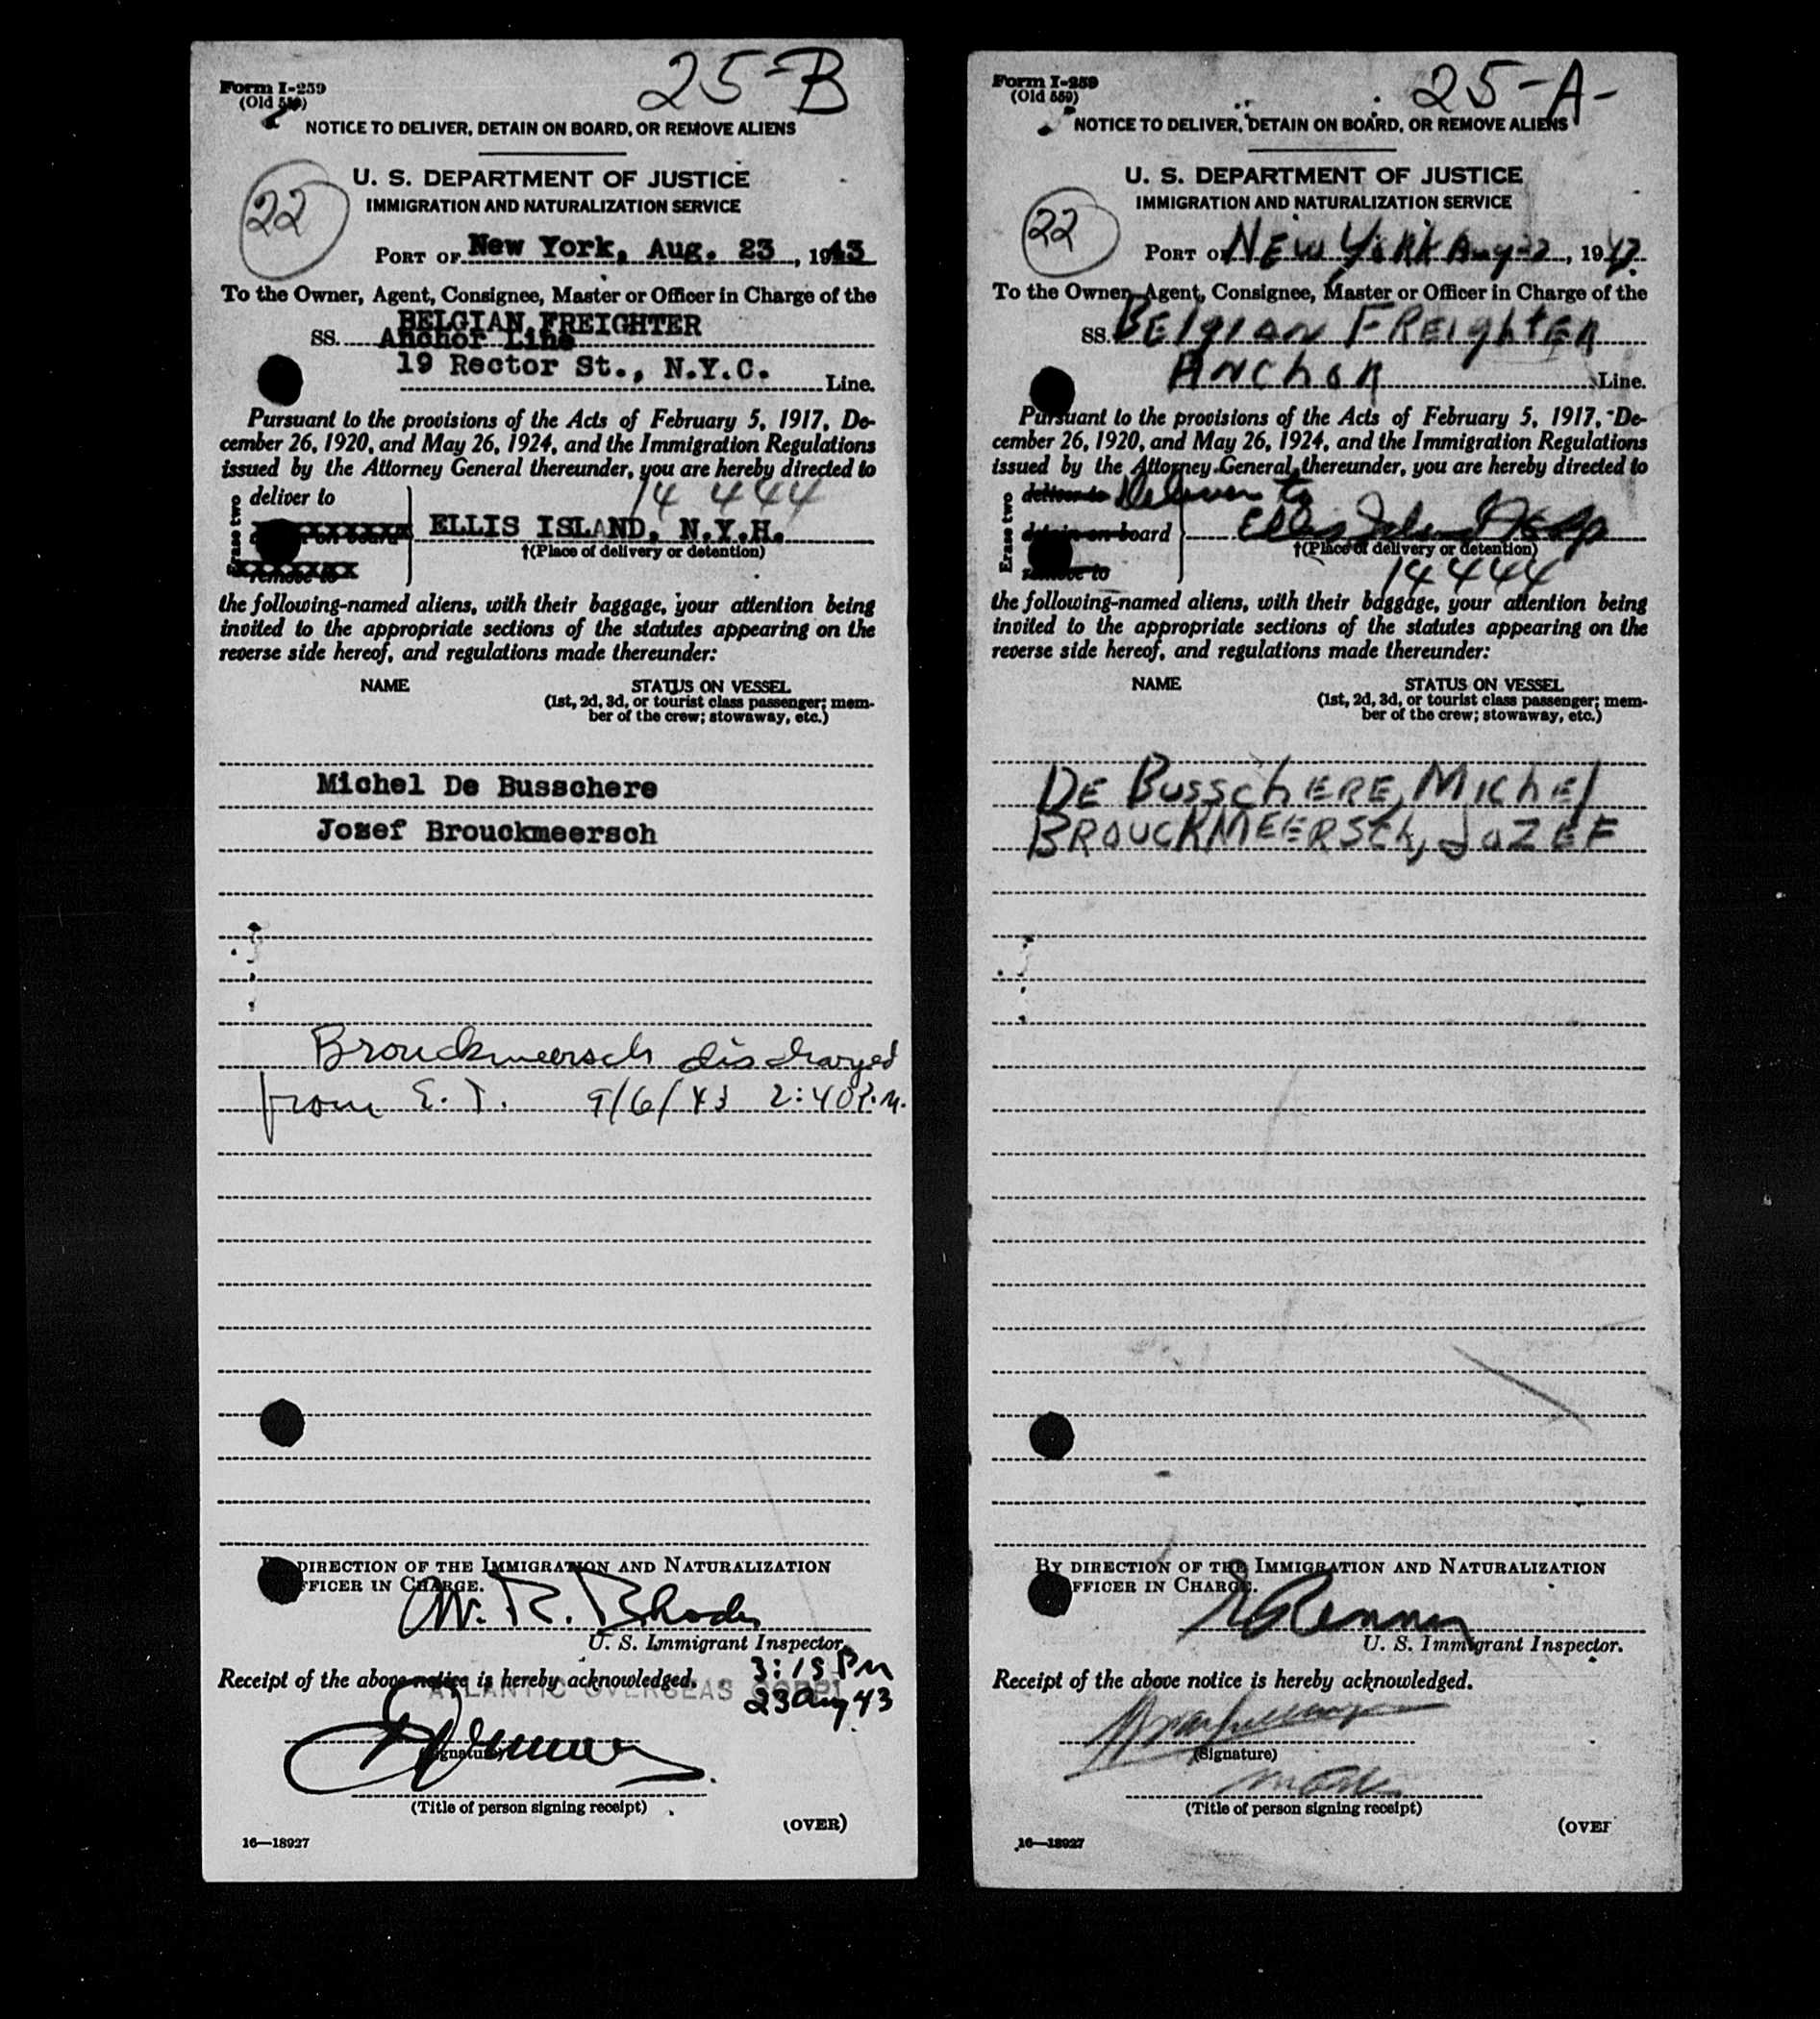 25-B
Form I-259
(Old 559)
NOTICE TO DELIVER, DETAIN ON BOARD, OR REMOVE ALIENS
U. S. DEPARTMENT OF JUSTICE
IMMIGRATION AND NATURALIZATION SERVICE
22
PORT OF New York, Aug. 23, 1943
To the Owner, Agent, Consignee, Master or Officer in Charge of the
BELGIAN FREIGHTER
SS. Anchor Line
19 Rector St., N.Y.C. Line.
Pursuant to the provisions of the Acts of February 5, 1917, De-
cember 26, 1920, and May 26, 1924, and the Immigration Regulations
issued by the Attorney General thereunder, you are hereby directed to
14 444
Erase two
deliver to
ELLIS ISLAND, N.Y.H.
†(Place of delivery or detention)
remove to
the following-named aliens, with their baggage, your attention being
invited to the appropriate sections of the statutes appearing on the
reverse side hereof, and regulations made thereunder:
NAME STATUS ON VESSEL
(1st, 2d, 3d, or tourist class passenger; mem-
ber of the crew; stowaway, etc.)
Michel De Busschere
Jozef Brouckmeersch
Brouckmeersch discharged
from E. I. 9/6/43 2:40 P.M.
DIRECTION OF THE IMMIGRATION AND NATURALIZATION
FFICER IN CHARGE.
W. R. Rhodes
U. S. Immigrant Inspector.
3:15 PM
Receipt of the above notice is hereby acknowledged.
ATLANTIC OVERSEAS CORP.
23 Aug 43
(Signature)
(Title of person signing receipt)
(OVER)
16—18927
25-A-
Form I-259
(Old 559)
NOTICE TO DELIVER, DETAIN ON BOARD, OR REMOVE ALIENS
U. S. DEPARTMENT OF JUSTICE
IMMIGRATION AND NATURALIZATION SERVICE
22
PORT OF NEW YORK Aug , 1943
To the Owner, Agent, Consignee, Master or Officer in Charge of the
SS. BElgIAN FREIghtER
ANChOR Line.
Pursuant to the provisions of the Acts of February 5, 1917, De-
cember 26, 1920, and May 26, 1924, and the Immigration Regulations
issued by the Attorney General thereunder, you are hereby directed to
Erase two
deliver to Deliver to
detain on board Ellis Island
†(Place of delivery or detention)
remove to
14444
the following-named aliens, with their baggage, your attention being
invited to the appropriate sections of the statutes appearing on the
reverse side hereof, and regulations made thereunder:
NAME STATUS ON VESSEL
(1st, 2d, 3d, or tourist class passenger; mem-
ber of the crew; stowaway, etc.)
DE BUSSChERE, MIChEl
BROUCKMEERSCh, JOZEF
BY DIRECTION OF THE IMMIGRATION AND NATURALIZATION
FFICER IN CHARGE.
U. S. Immigrant Inspector.
Receipt of the above notice is hereby acknowledged.
(Signature)
(Title of person signing receipt)
(OVER
16—18927